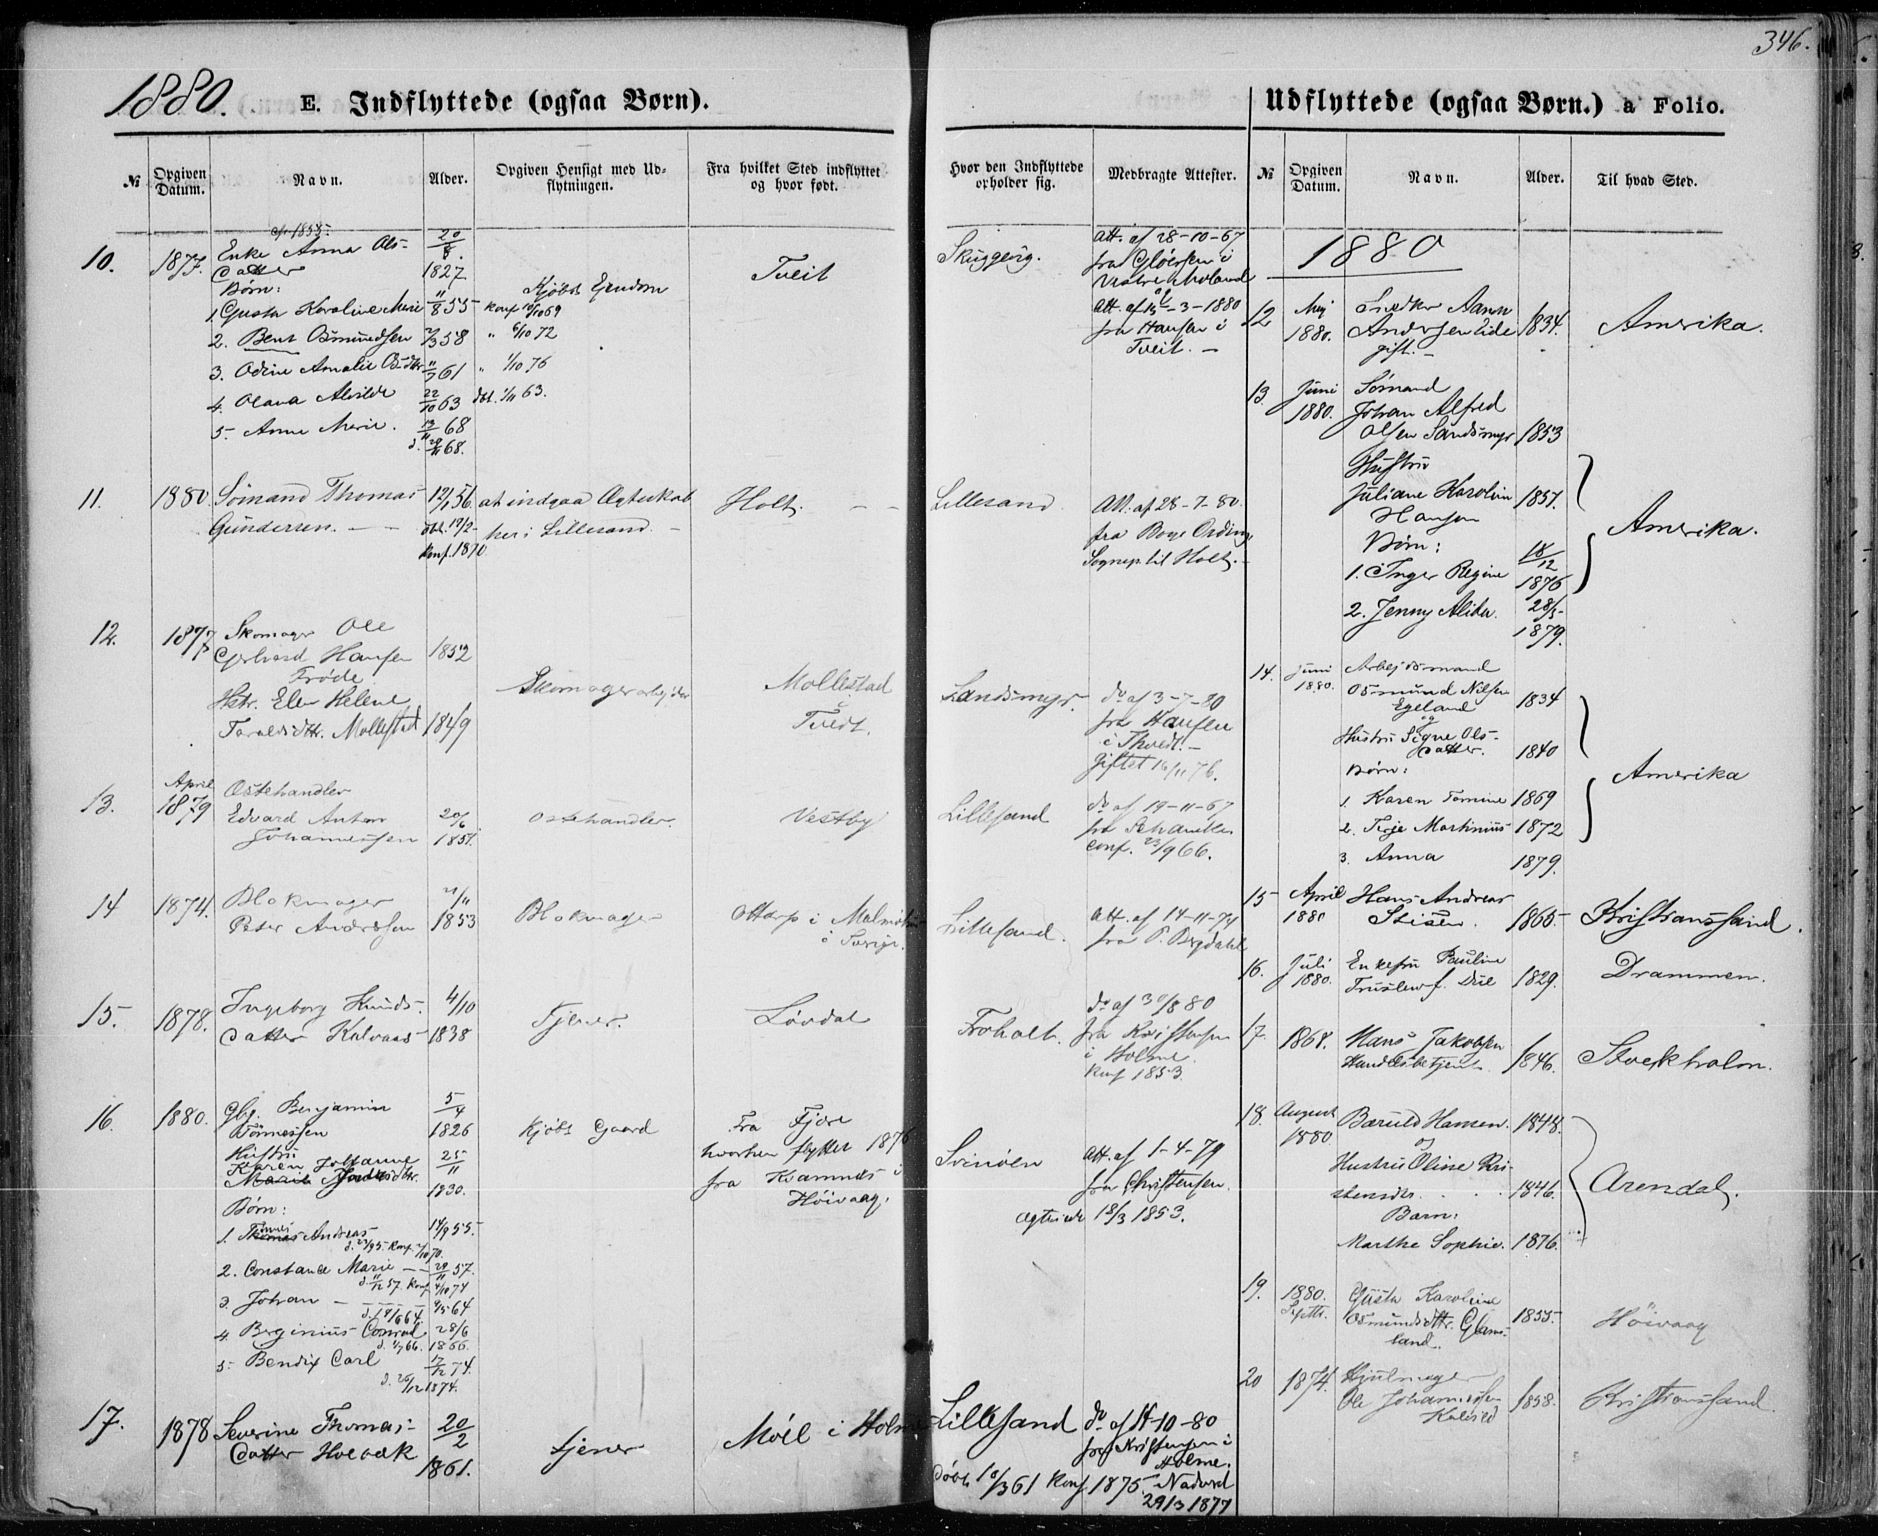 346.
1880. E. Indflyttede (ogsaa Børn).
Udflyttede (ogsaa Børn.) a Folio.
№ Opgiven Datum. Navn. Alder. Opgiven Hensigt med Udflytningen. Fra hvilket Sted indflyttet og hvor født.
Hvor den Indflyttede opholder sig. Medbragte Attester.
№ Opgiven Datum. Navn. Alder. Til hvad Sted.
10. 1877. Enke Anna Ols- 20/8
datter 1827
Børn: Kjøbt Ejendom Tveit
1. Gusta Karoline Marie 11/8 55 Konf 10/10 69
2. Bent Osmundsen 2/3 58 " 6/10 72
3. Odine Amalie 11/7 61 " 1/10 76
4. Olava Alvilde 22/10 63 dbt. 1/11 63.
5. Anne Marie. 13/11 68
d. 29/11 68.
Skuggevig. Att. af 28-10-67
fra Gløersen i
Vestre Moland
Att. af 15-3-1880
fra Hansen i
Tveit. -
11. 1880 Sømand Thomas 12/1 56 at indgaa Ægteskab Holt. - -
Gundersen. - - dbt. 17/2- her i Lillesand. -
Konf. 1870
Lillesand Att. af 28-7-80
fra Boye Ording
Sognep. til Holt. -
12. 1877 Skomager Ole
Gerhard Hansen 1852
Frøde Skomagerarbejder Mollestad
Hstr. Elen Helene i
Taraldsdttr. Mollestad 1849 Tvedt.
Sandsmyr. do af 3-7-80
fra Hansen
i Thvedt. -
Giftet 16/11 76.
13. April 1879 Ostehandler
Edvard Anton 20/6 Ostehandler. Vestby
Johannessen 1851.
Lillesand do af 19-11-67
conf. 23/9 66.
14 1874. Blokmager 21/11
Peter Andersen 1853 Blokmager Ottarp i
i Sverige.
Lillesand. Att. af 14-11-74
fra P. Bergdahl
15. 1878. Ingeborg Knuds- 4/10
datter Kalvaas 1838 Tjener. Løvdal
Froholt. do af 30/8 80
fra Kristensen
i Holme.
Konf 1853.
16. 1880. Gbr. Benjamin 5/4
Tønnessen 1826 Kjøbt Gaard Fra Fjære
Hustru hvorhen flyttet 1876
Karen Johanne 25/11 fra Kvamnes i
1830. Høivaag.
Børn:
1. Tønnes Andreas 14/9 55.
2. Constance Marie - 29/11 57.
d. 11/12 57. Konf 4/10 74
3. Johan - 64
4. Berginius Conrad 28/6
1866
5. Bendix Carl 17/12 74.
d. 26/12 1874.
Svinøen Att. af 1-4-79
fra Christensen.
Ægteviede 18/3 1853.
17. 1878 Severine Thomas- 20/2
datter Holbæk 1861. tjener Møll i Holme
Lillesand do af 11-10-80
fra Kristensen i
Holme.
Døbt 10/3 61 Konf. 1875. Nadverd
29/3 1877
1880
12 Mej 1880. Snedker Aanen
Andersen Eide 1834. Amerika.
gift. -
13. Juni 1880. Sømand
Johan Alfred
Olsen Sandsmyr 1853
Hustru
Juliane Karoline 1857.
Hansen
Børn: Amerika.
1. Inger Regine 18/12 1876
2. Jenny Alida. 28/5 1879.
14. Juni 1880. Arbejdsmand
Osmund Nilsen 1834
Egeland
og
Hustru Signe Ols-
datter. 1840
Børn: Amerika
1. Karen Tomine 1869
2. Terje Martinius 1872
3. Anna 1879.
15 April 1880 Hans Andreas
Stisen. 1865 Kristianssand.
16. Juli 1880. Enkefru Pauline
Truelsen f. Due 1829. Drammen.
17. 1868. Hans Jakobsen
Handelsbetjent 1846. Stockholm.
18. August 1880 Baruld Hansen. 1848.
og
Hustru Oline Kri-
stensdtr. . . . 1846. Arendal.
Barn:
Marthe Sophie. 1876.
19. 1880. Septbr. Gusta Karoline
Osmundsdttr. Glams- 1855. Høivaag
land.
20 1874. Hjulmager
Ole Johannessen 1858. Kristianssand.